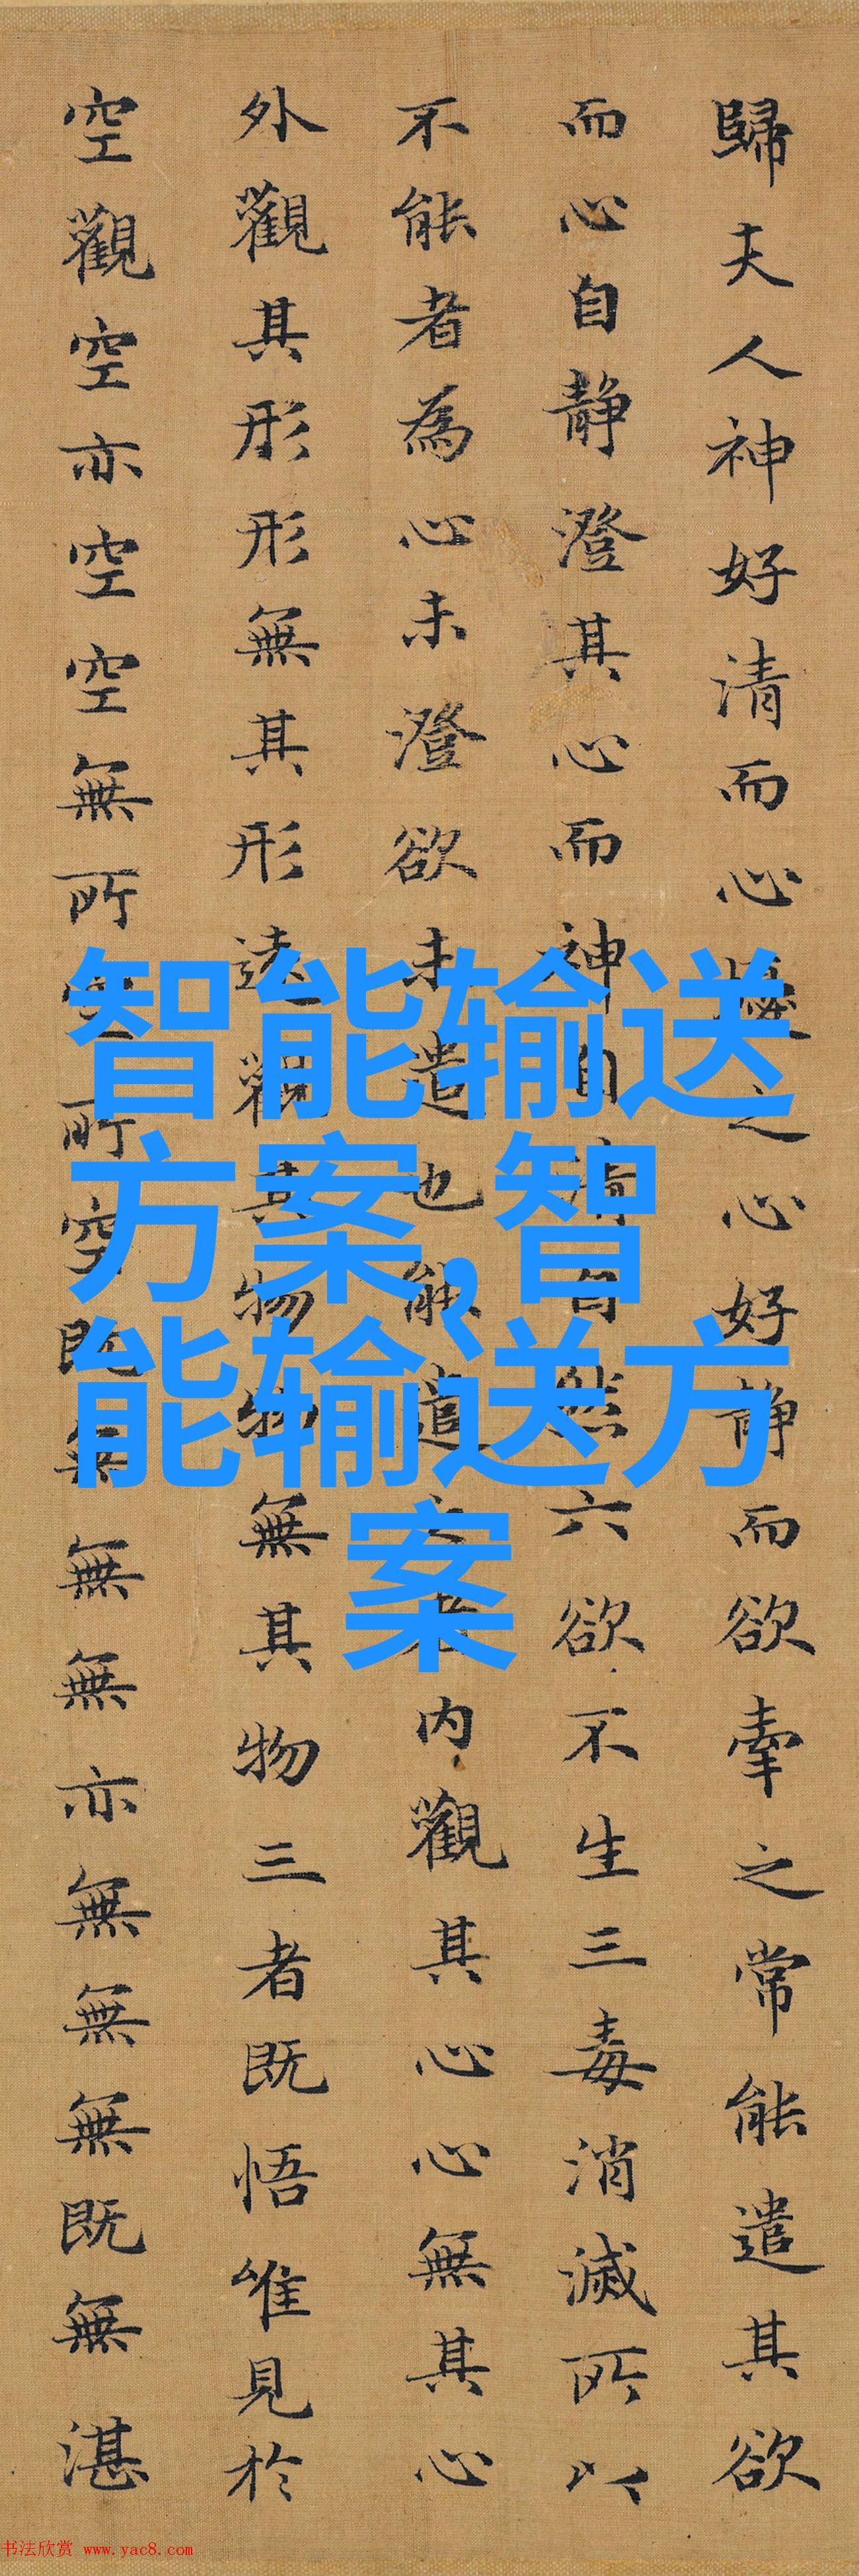 歸夫人神好清而心擾之心好静而欲牽之常能遣其欲
而心自静澄其心而神自清自然六欲不生三毒消滅所以
不能者為心未澄欲未遣也能遣之者内觀其心心無其心
外觀其形形無其形遠觀其物物無其物三者既悟唯見於
空觀空亦空空無所空所空既無無無亦無無無既無湛
智能输送
方案,智
能输送方
案
书法欣赏 www.yac8.com